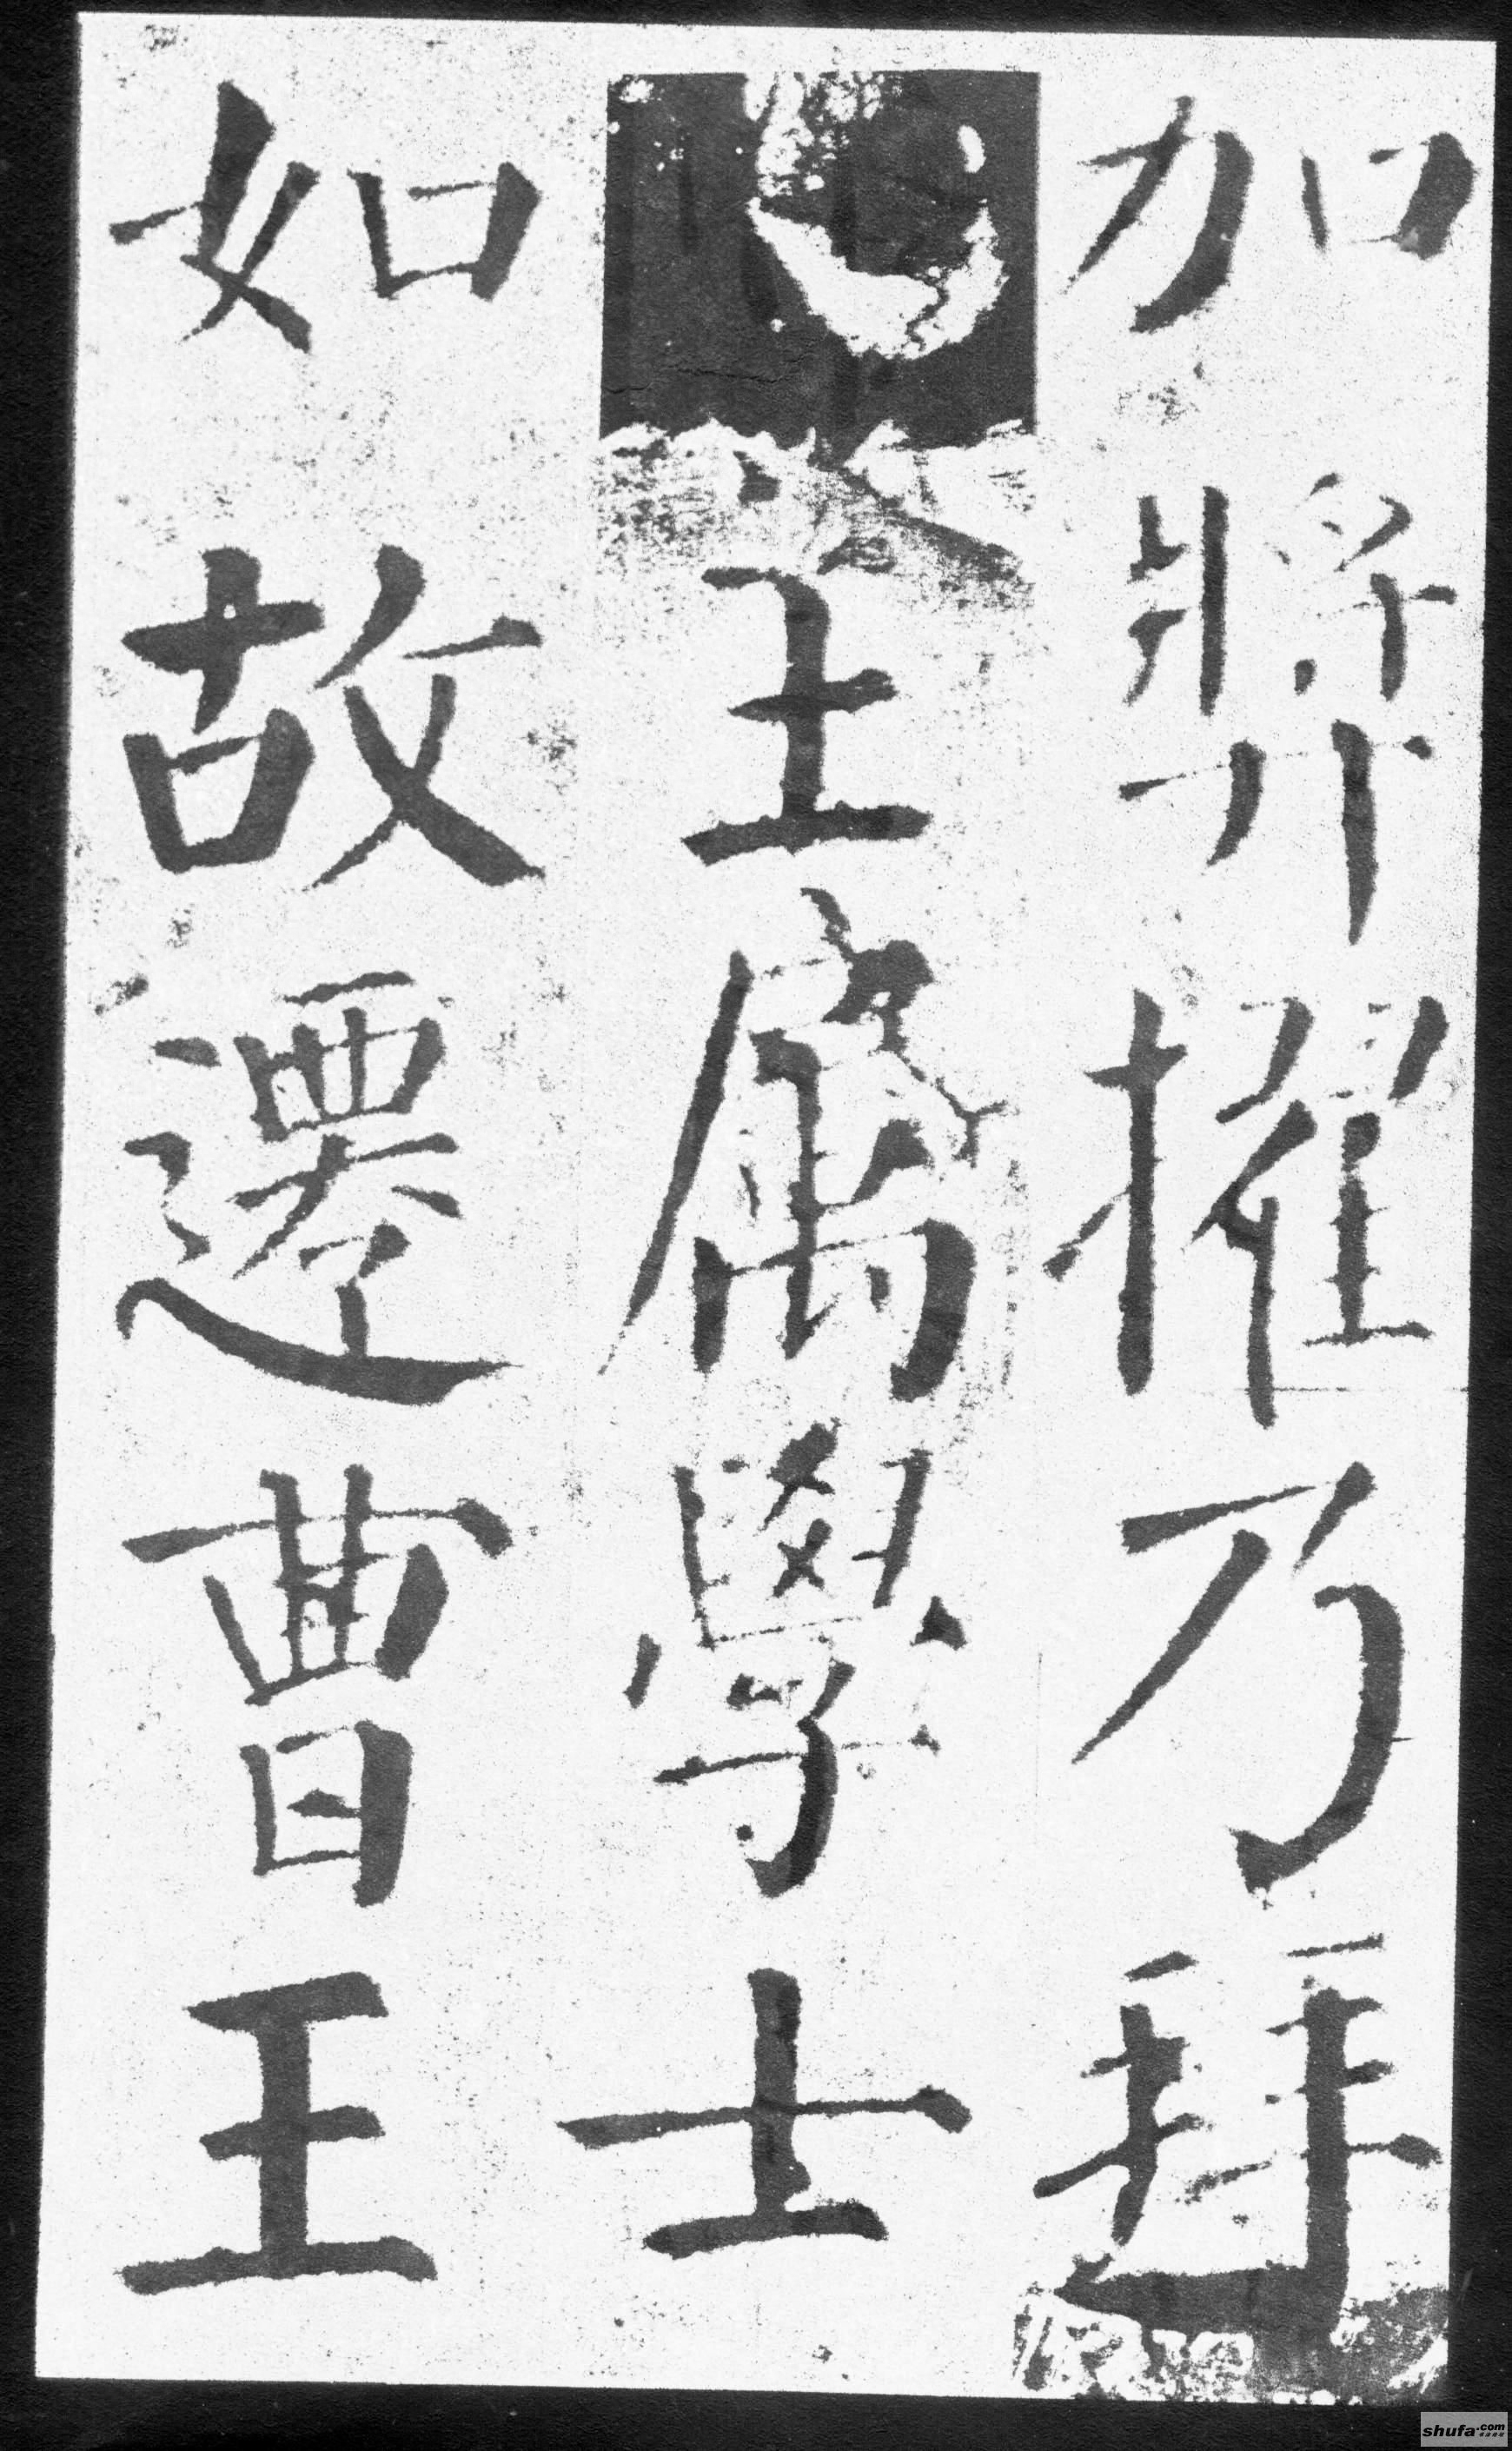 加奬擢乃拜
主属學士
如故遷曹王
shufa.com